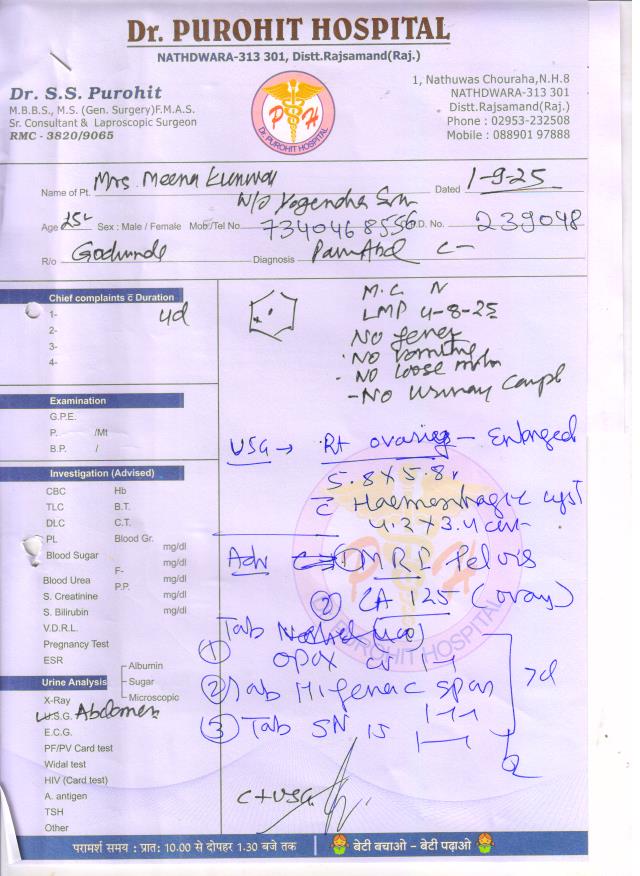 Dr. PUROHIT HOSPITAL
NATHDWARA-313 301, Distt.Rajsamand(Raj.)
Dr. S.S. Purohit
M.B.B.S., M.S. (Gen. Surgery)F.M.A.S.
Sr. Consultant & Laproscopic Surgeon
RMC - 3820/9065
P H
Dr. PUROHIT HOSPITAL
1, Nathuwas Chouraha,N.H.8
NATHDWARA-313 301
Distt.Rajsamand(Raj.)
Phone : 02953-232508
Mobile : 088901 97888
Name of Pt. Mrs. Meena Kunwar Dated 1-9-25
W/o Yogendra
Age Sex : Male / Female Mob./Tel No. 7340468556 O.P.D. No. 239048
R/o Diagnosis Pain Abd
Chief complaints c̅ Duration
1- 4d
2-
3-
4-
M.C. N
LMP 4-8-25
No fever
- No vomiting
- No loose motion
- No urinary
Examination
G.P.E.
P. /Mt
B.P. /
USG → Rt ovaries - Enlarged
5.8 x 5.8
c̅ Haemorrhagic cyst
4.2 x 3.4 cm
Investigation (Advised)
CBC Hb
TLC B.T.
DLC C.T.
PL Blood Gr.
Blood Sugar F- mg/dl
P.P. mg/dl
Blood Urea mg/dl
S. Creatinine mg/dl
S. Bilirubin mg/dl
V.D.R.L.
Pregnancy Test
ESR
Adv ① MRI Pelvis
② CA 125 (ovary)
① Tab
1-1
② Tab Hifenac span
1-1
③ Tab SN 15
1-1
7d
Urine Analysis
Albumin
Sugar
Microscopic
X-Ray
U.S.G. Abdomen
E.C.G.
PF/PV Card test
Widal test
HIV (Card test)
A. antigen
TSH
Other
C+USG
परामर्श समय : प्रात: 10.00 से दोपहर 1.30 बजे तक
बेटी बचाओ - बेटी पढ़ाओ